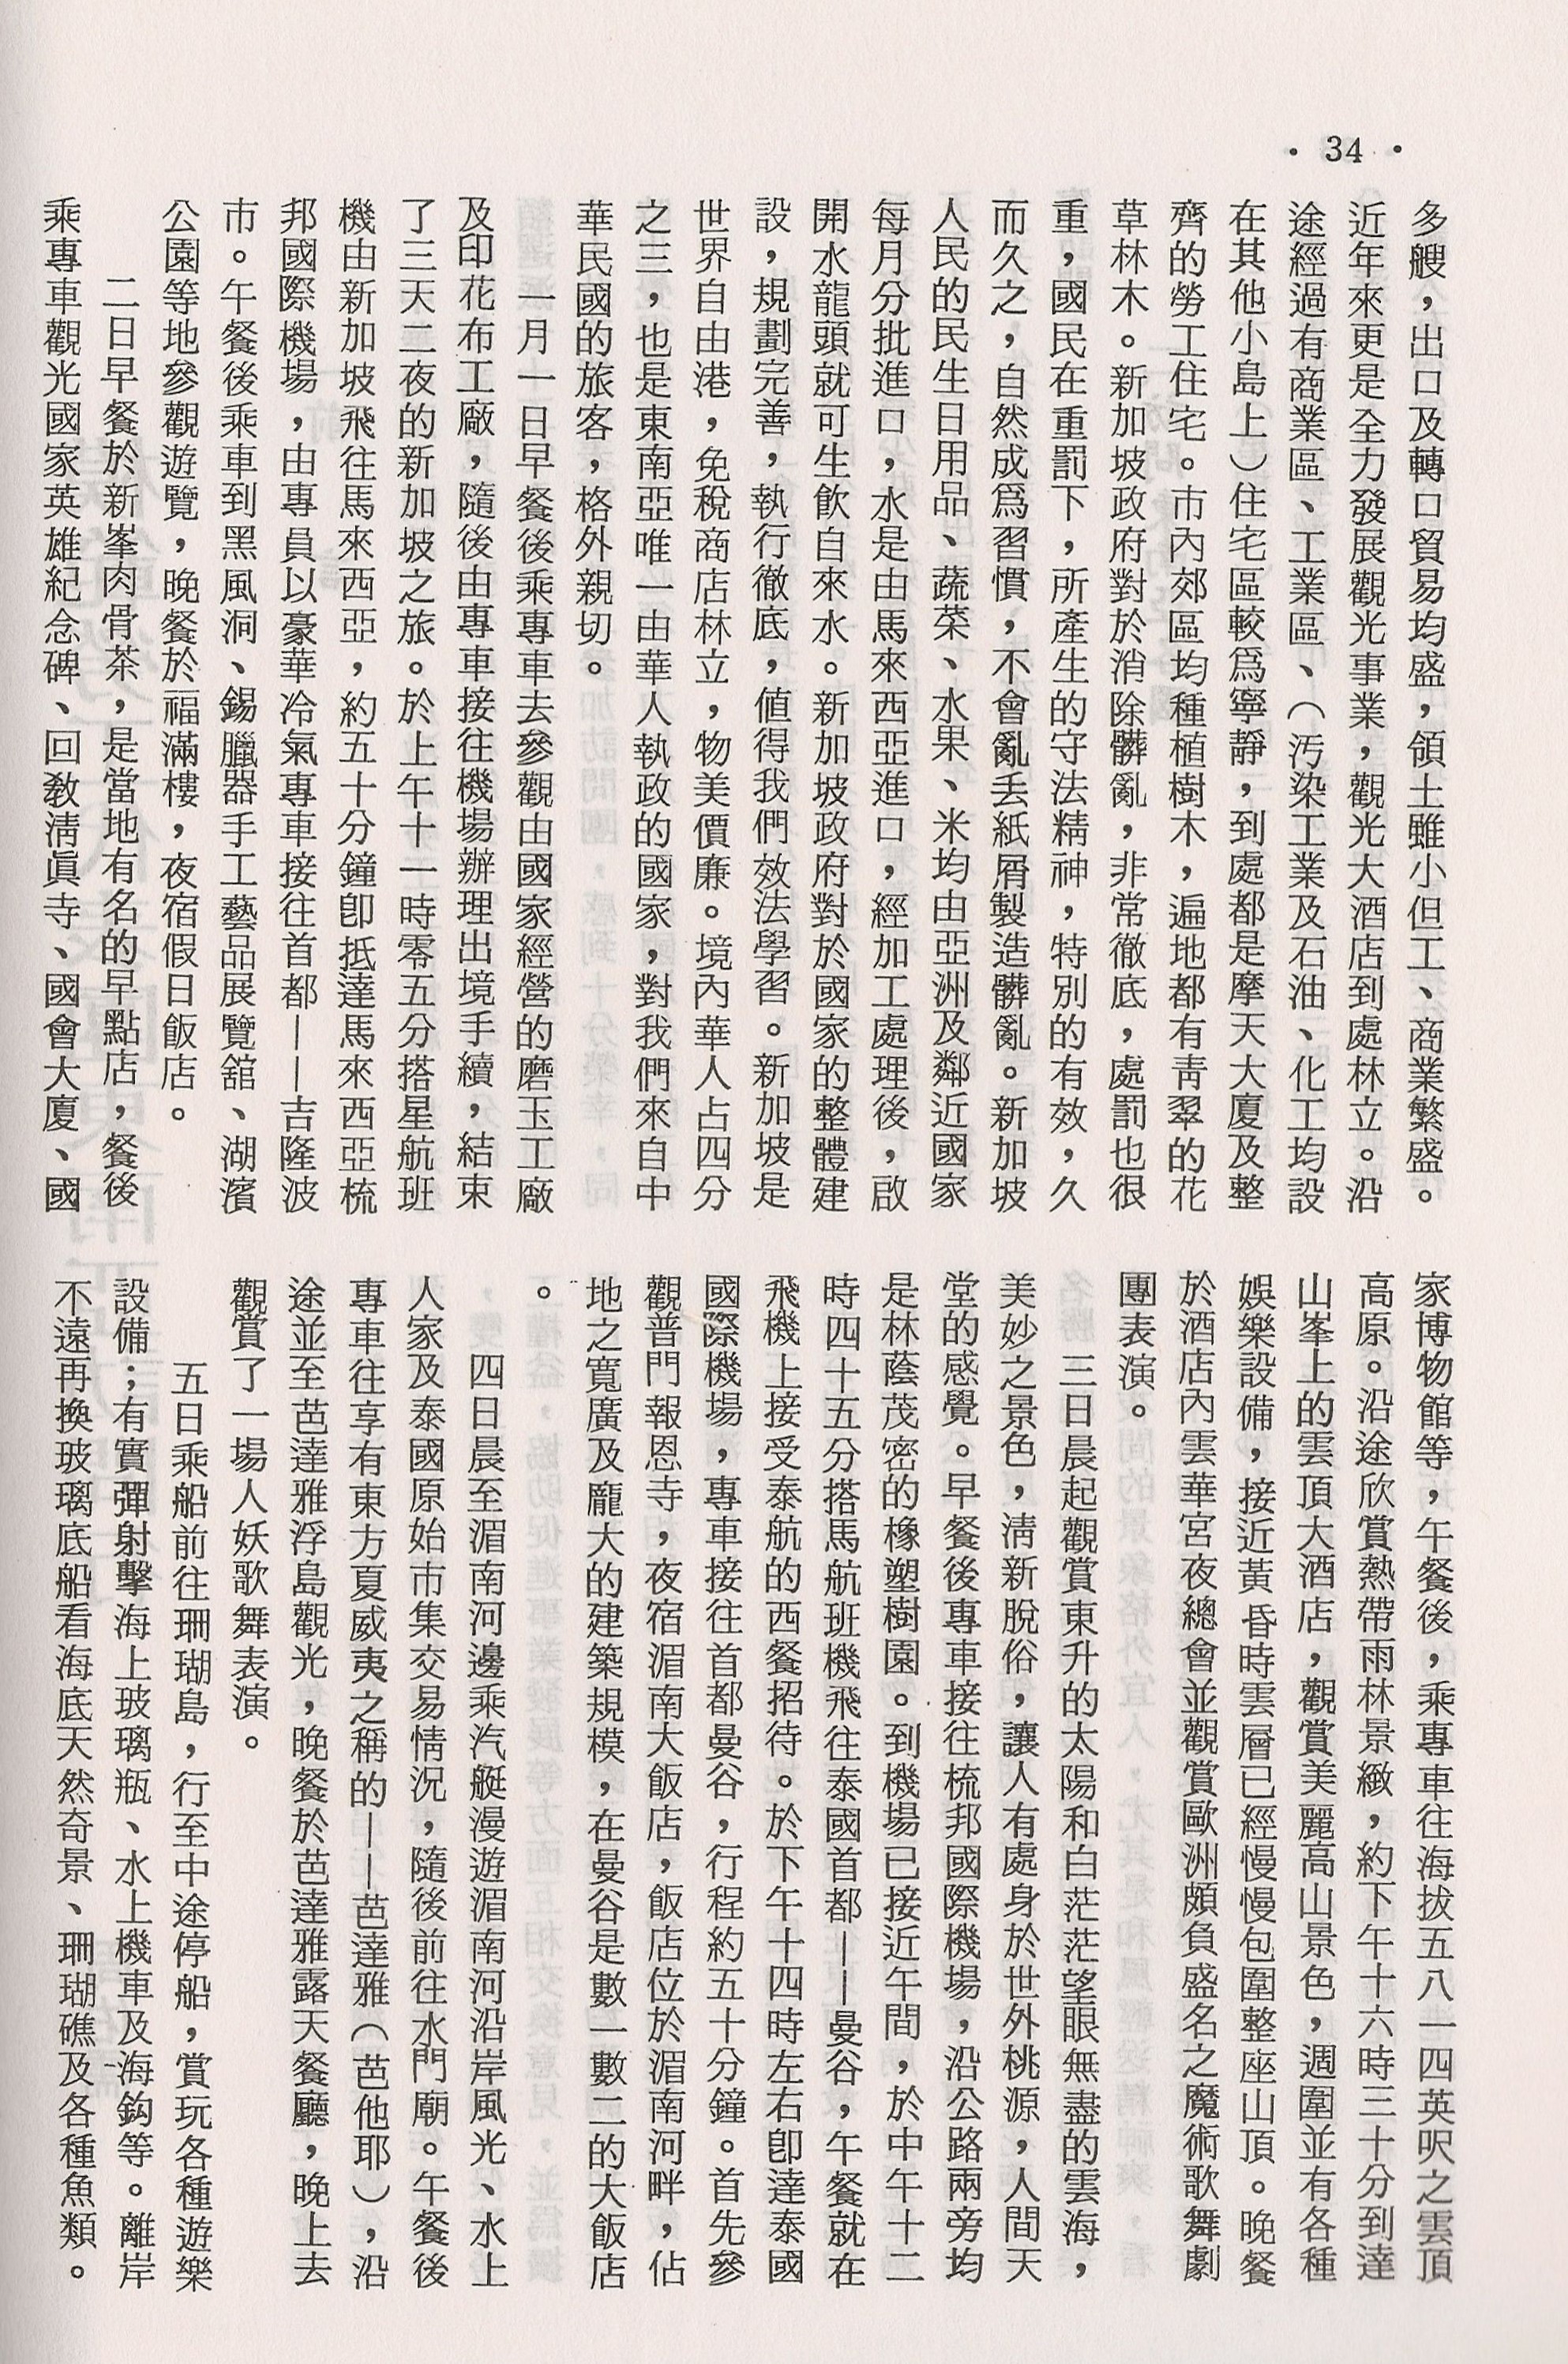 · 34 ·
多艘，出口及轉口貿易均盛，領土雖小但工、商業繁盛。
近年來更是全力發展觀光事業，觀光大酒店到處林立。沿
途經過有商業區、工業區、（汚染工業及石油、化工均設
在其他小島上）住宅區較爲寧靜，到處都是摩天大廈及整
齊的勞工住宅。市內郊區均種植樹木，遍地都有靑翠的花
草林木。新加坡政府對於消除髒亂，非常徹底，處罰也很
重，國民在重罰下，所產生的守法精神，特別的有效，久
而久之，自然成爲習慣，不會亂丟紙屑製造髒亂。新加坡
人民的民生日用品、蔬菜、水果、米均由亞洲及鄰近國家
每月分批進口，水是由馬來西亞進口，經加工處理後，啟
開水龍頭就可生飲自來水。新加坡政府對於國家的整體建
設，規劃完善，執行徹底，値得我們效法學習。新加坡是
世界自由港，免稅商店林立，物美價廉。境內華人占四分
之三，也是東南亞唯一由華人執政的國家，對我們來自中
華民國的旅客，格外親切。
一月一日早餐後乘專車去參觀由國家經營的磨玉工廠
及印花布工廠，隨後由專車接往機場辦理出境手續，結束
了三天二夜的新加坡之旅。於上午十一時零五分搭星航班
機由新加坡飛往馬來西亞，約五十分鐘卽抵達馬來西亞梳
邦國際機場，由專員以豪華冷氣專車接往首都——吉隆波
市。午餐後乘車到黑風洞、錫臘器手工藝品展覽舘、湖濱
公園等地參觀遊覽，晚餐於福滿樓，夜宿假日飯店。
二日早餐於新峯肉骨茶，是當地有名的早點店，餐後
乘專車觀光國家英雄紀念碑、回敎淸眞寺、國會大廈、國
家博物館等，午餐後，乘專車往海拔五八一四英呎之雲頂
高原。沿途欣賞熱帶雨林景緻，約下午十六時三十分到達
山峯上的雲頂大酒店，觀賞美麗高山景色，週圍並有各種
娛樂設備，接近黃昏時雲層已經慢慢包圍整座山頂。晚餐
於酒店內雲華宮夜總會並觀賞歐洲頗負盛名之魔術歌舞劇
團表演。
三日晨起觀賞東升的太陽和白茫茫望眼無盡的雲海，
美妙之景色，淸新脫俗，讓人有處身於世外桃源，人間天
堂的感覺。早餐後專車接往梳邦國際機場，沿公路兩旁均
是林蔭茂密的橡塑樹園。到機場已接近午間，於中午十二
時四十五分搭馬航班機飛往泰國首都——曼谷，午餐就在
飛機上接受泰航的西餐招待。於下午十四時左右卽達泰國
國際機場，專車接往首都曼谷，行程約五十分鐘。首先參
觀普門報恩寺，夜宿湄南大飯店，飯店位於湄南河畔，佔
地之寬廣及龐大的建築規模，在曼谷是數一數二的大飯店
。
四日晨至湄南河邊乘汽艇漫遊湄南河沿岸風光、水上
人家及泰國原始市集交易情況，隨後前往水門廟。午餐後
專車往享有東方夏威夷之稱的——芭達雅（芭他耶），沿
途並至芭達雅浮島觀光，晚餐於芭達雅露天餐廳，晚上去
觀賞了一場人妖歌舞表演。
五日乘船前往珊瑚島，行至中途停船，賞玩各種遊樂
設備；有實彈射擊海上玻璃瓶、水上機車及海鈎等。離岸
不遠再換玻璃底船看海底天然奇景、珊瑚礁及各種魚類。